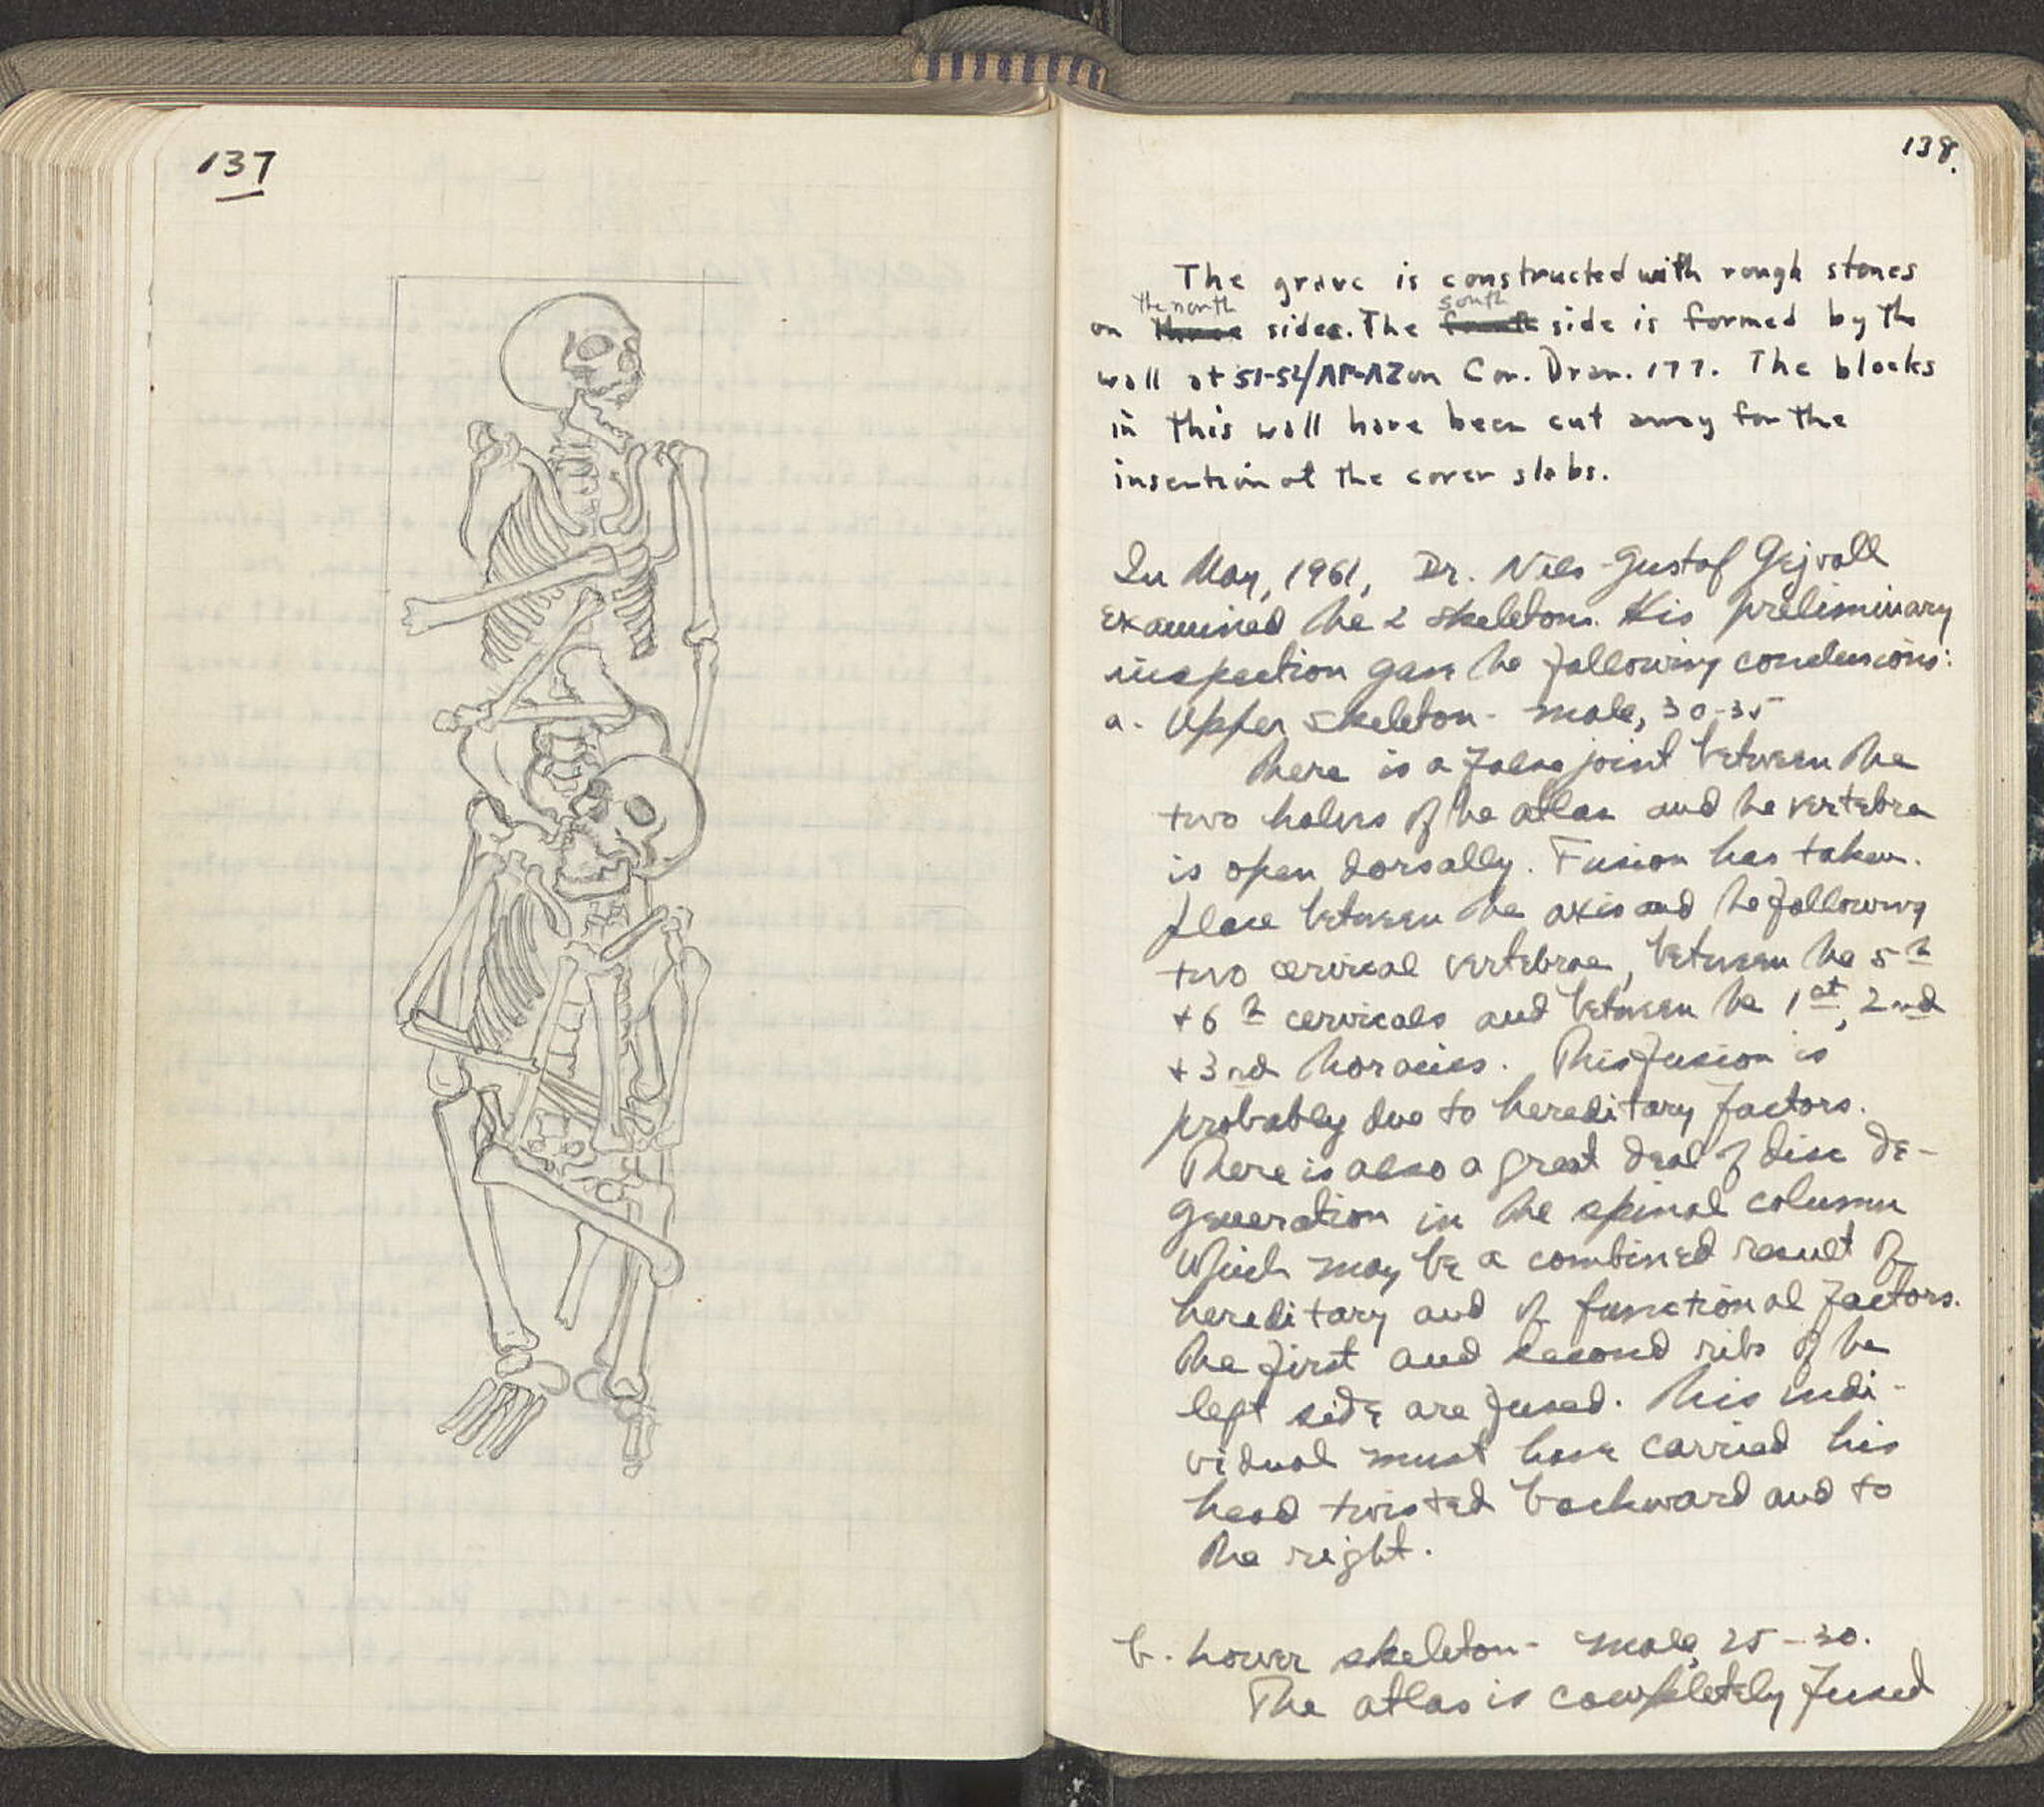 137
138.
The grave is constructed with rough stones
the north south
on three sides. The fourth side is formed by the
wall at 51-52/AP-AZ on Cor. Draw. 177. The blocks
in this wall have been cut away for the
insertion of the cover slabs.
In May, 1961, Dr. Nils-Gustaf Gejvall
examined the 2 skeletons. His preliminary
inspection gave the following conclusions:
a. Upper skeleton - male, 30-35
There is a false joint between the
two halves of the atlas and the vertebra
is open dorsally. Fusion has taken
place between the axis and the following
two cervical vertebrae, between the 5th
+ 6th cervicals and between the 1st, 2nd
+ 3rd thoracics. This fusion is
probably due to hereditary factors.
There is also a great deal of disc de-
generation in the spinal column
which may be a combined result of
hereditary and of functional factors.
The first and second ribs of the
left side are fused. This indi-
vidual must have carried his
head twisted backward and to
the right.
b. Lower skeleton - male, 25-30.
The atlas is completely fused